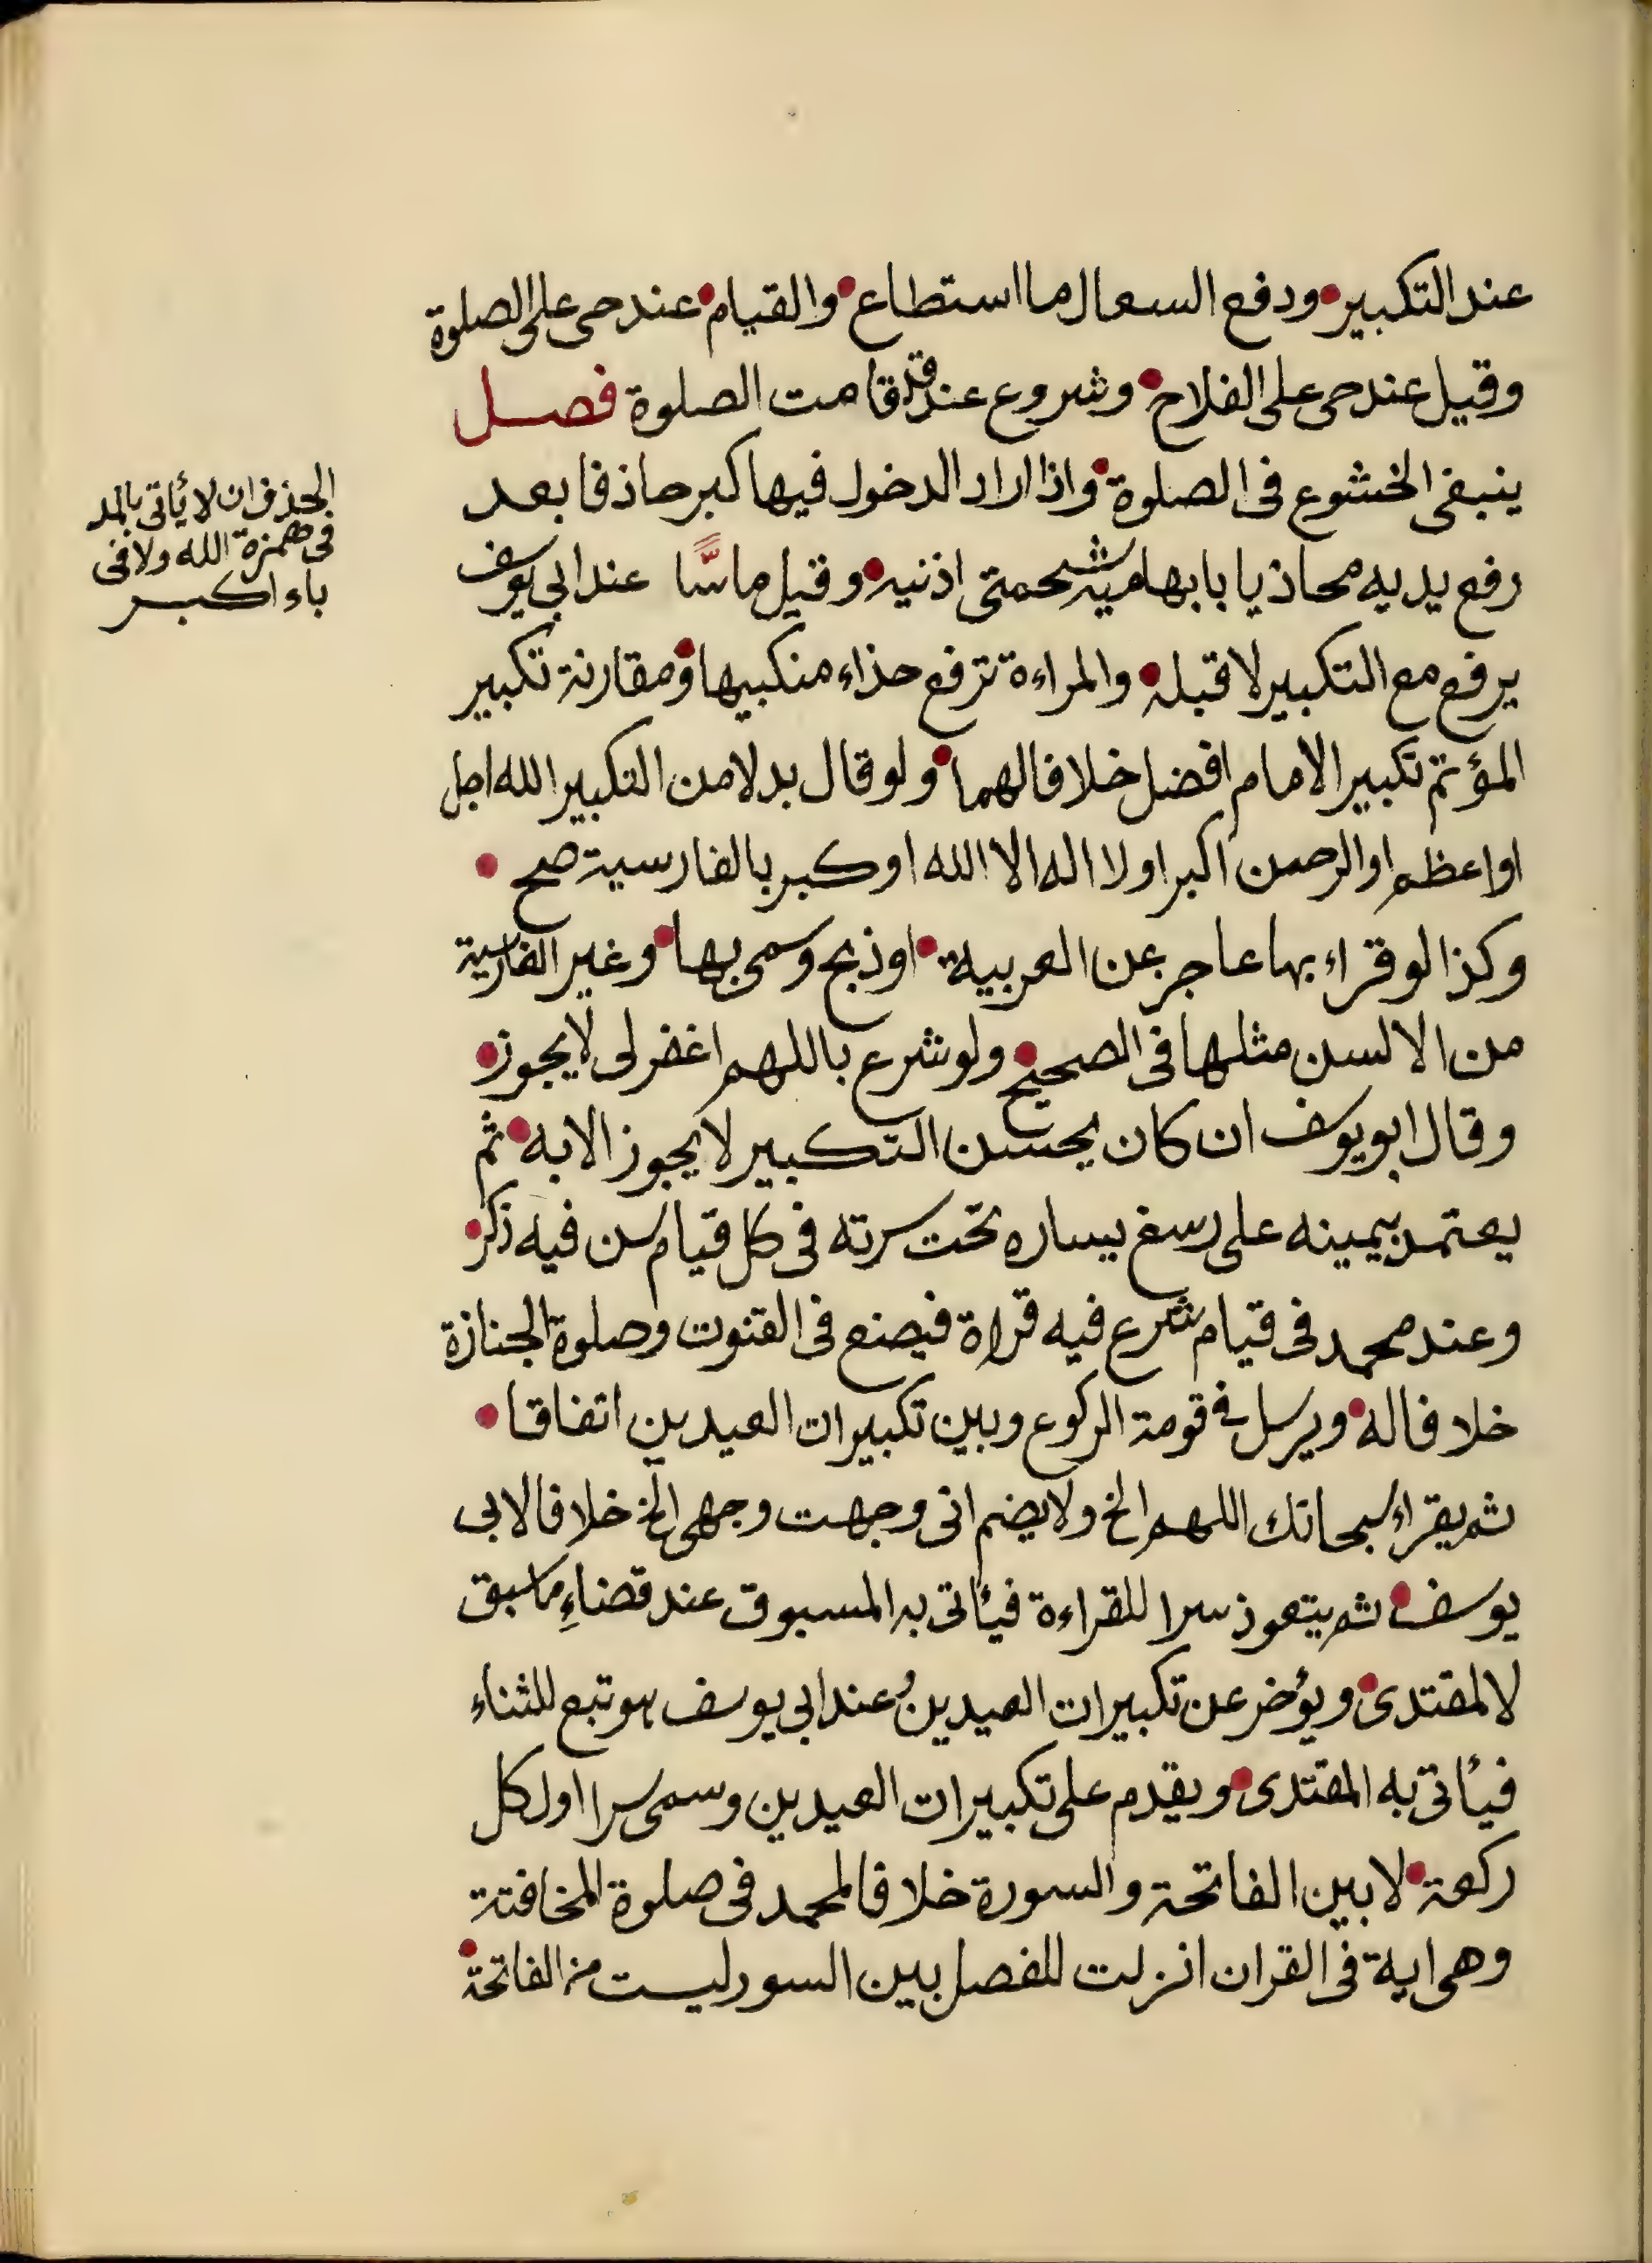 عند التكبير ودفع السعال ما استطاع والقيام عند حى على الصلوة
وقيل عند حى على الفلاح وشروع عند قد قامت الصلوة فصل
ينبغى الخشوع فى الصلوة واذا اراد الدخول فيها كبر حاذفا بعد
رفع يديه محاذيا بابهاميه شحمتى اذنيه وقيل ماسّا عند ابي يوسف
يرفع مع التكبير لا قبله والمراءة ترفع حذاء منكبيها ومقارنة تكبير
المؤتم تكبير الامام افضل خلافا لهما ولو قال بدلا من التكبير الله اجل
او اعظم او الرحمن اكبر او لا اله الا الله او كبر بالفارسية صح
وكذا لو قراء بها عاجر عن العربية او ذبح وسمى بها وغير الفارسية
من الالسن مثلها فى الصحيح ولو شرع باللهم اغفر لى لا يجوز
وقال ابو يوسف ان كان يحسن التكبير لا يجوز الا به ثم
يعتمد بيمينه على رسغ يساره تحت سرته فى كل قيام سن فيه ذكر
وعند محمد فى قيام شرع فيه قراة فيصنع فى القنوت وصلوة الجنازة
خلافا له ويرسل فى قومة الركوع وبين تكبيرات العيدين اتفاقا
ثم يقراء سبحانك اللهم الخ ولا يضم انى وجهت وجهى الخ خلافا لابى
يوسف ثم يتعوذ سرا للقراءة فيأتى به المسبوق عند قضاءِ ما سبق
لا المقتدى ويؤخر عن تكبيرات العيدين وعند ابى يوسف هو تبع للثناء
فيأتى به المقتدى ويقدم على تكبيرات العيدين وسمى سرا اول كل
ركعة لا بين الفاتحة والسورة خلافا لمحمد فى صلوة المخافتة
وهى اية فى القران انزلت للفصل بين السور ليست من الفاتحة
الحذف ان لا يأتى بالمد
فى همزة الله ولا فى
باء اكبر